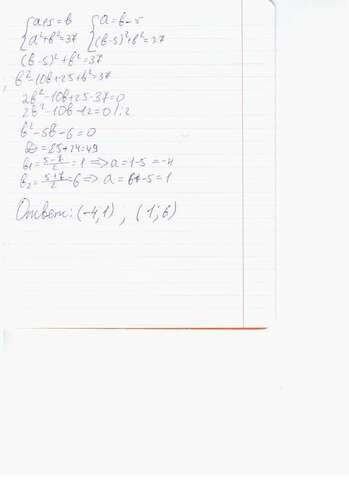 {a+5=b {a=b-5
{a²+b²=37 {(b-5)²+b²=37
(b-5)²+b²=37
b²-10b+25+b²=37
2b²-10b+25-37=0
2b²-10b-12=0 /:2
b²-5b-6=0
D=25+24=49
b₁=\frac{5-7}{2}=1 ⇒ a=1-5=-4
b₂=\frac{5+7}{2}=6 ⇒ a=6-5=1
Ответ: (-4;1) ; (1;6)